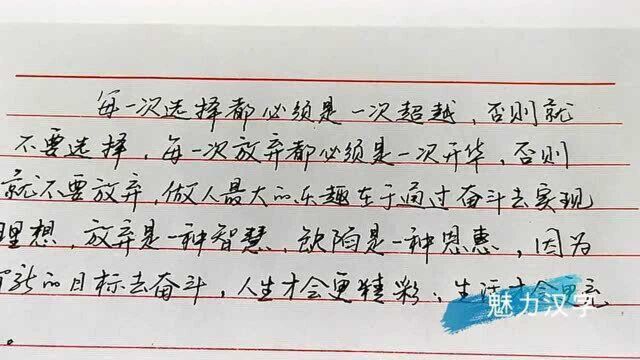 每一次选择都必须是一次超越，否则就
不要选择，每一次放弃都必须是一次升华，否则
就不要放弃，做人最大的乐趣在于通过奋斗去实现
理想，放弃是一种智慧，缺陷是一种恩惠，因为
新的目标去奋斗，人生才会更精彩，生活才会更充
。
魅力汉字